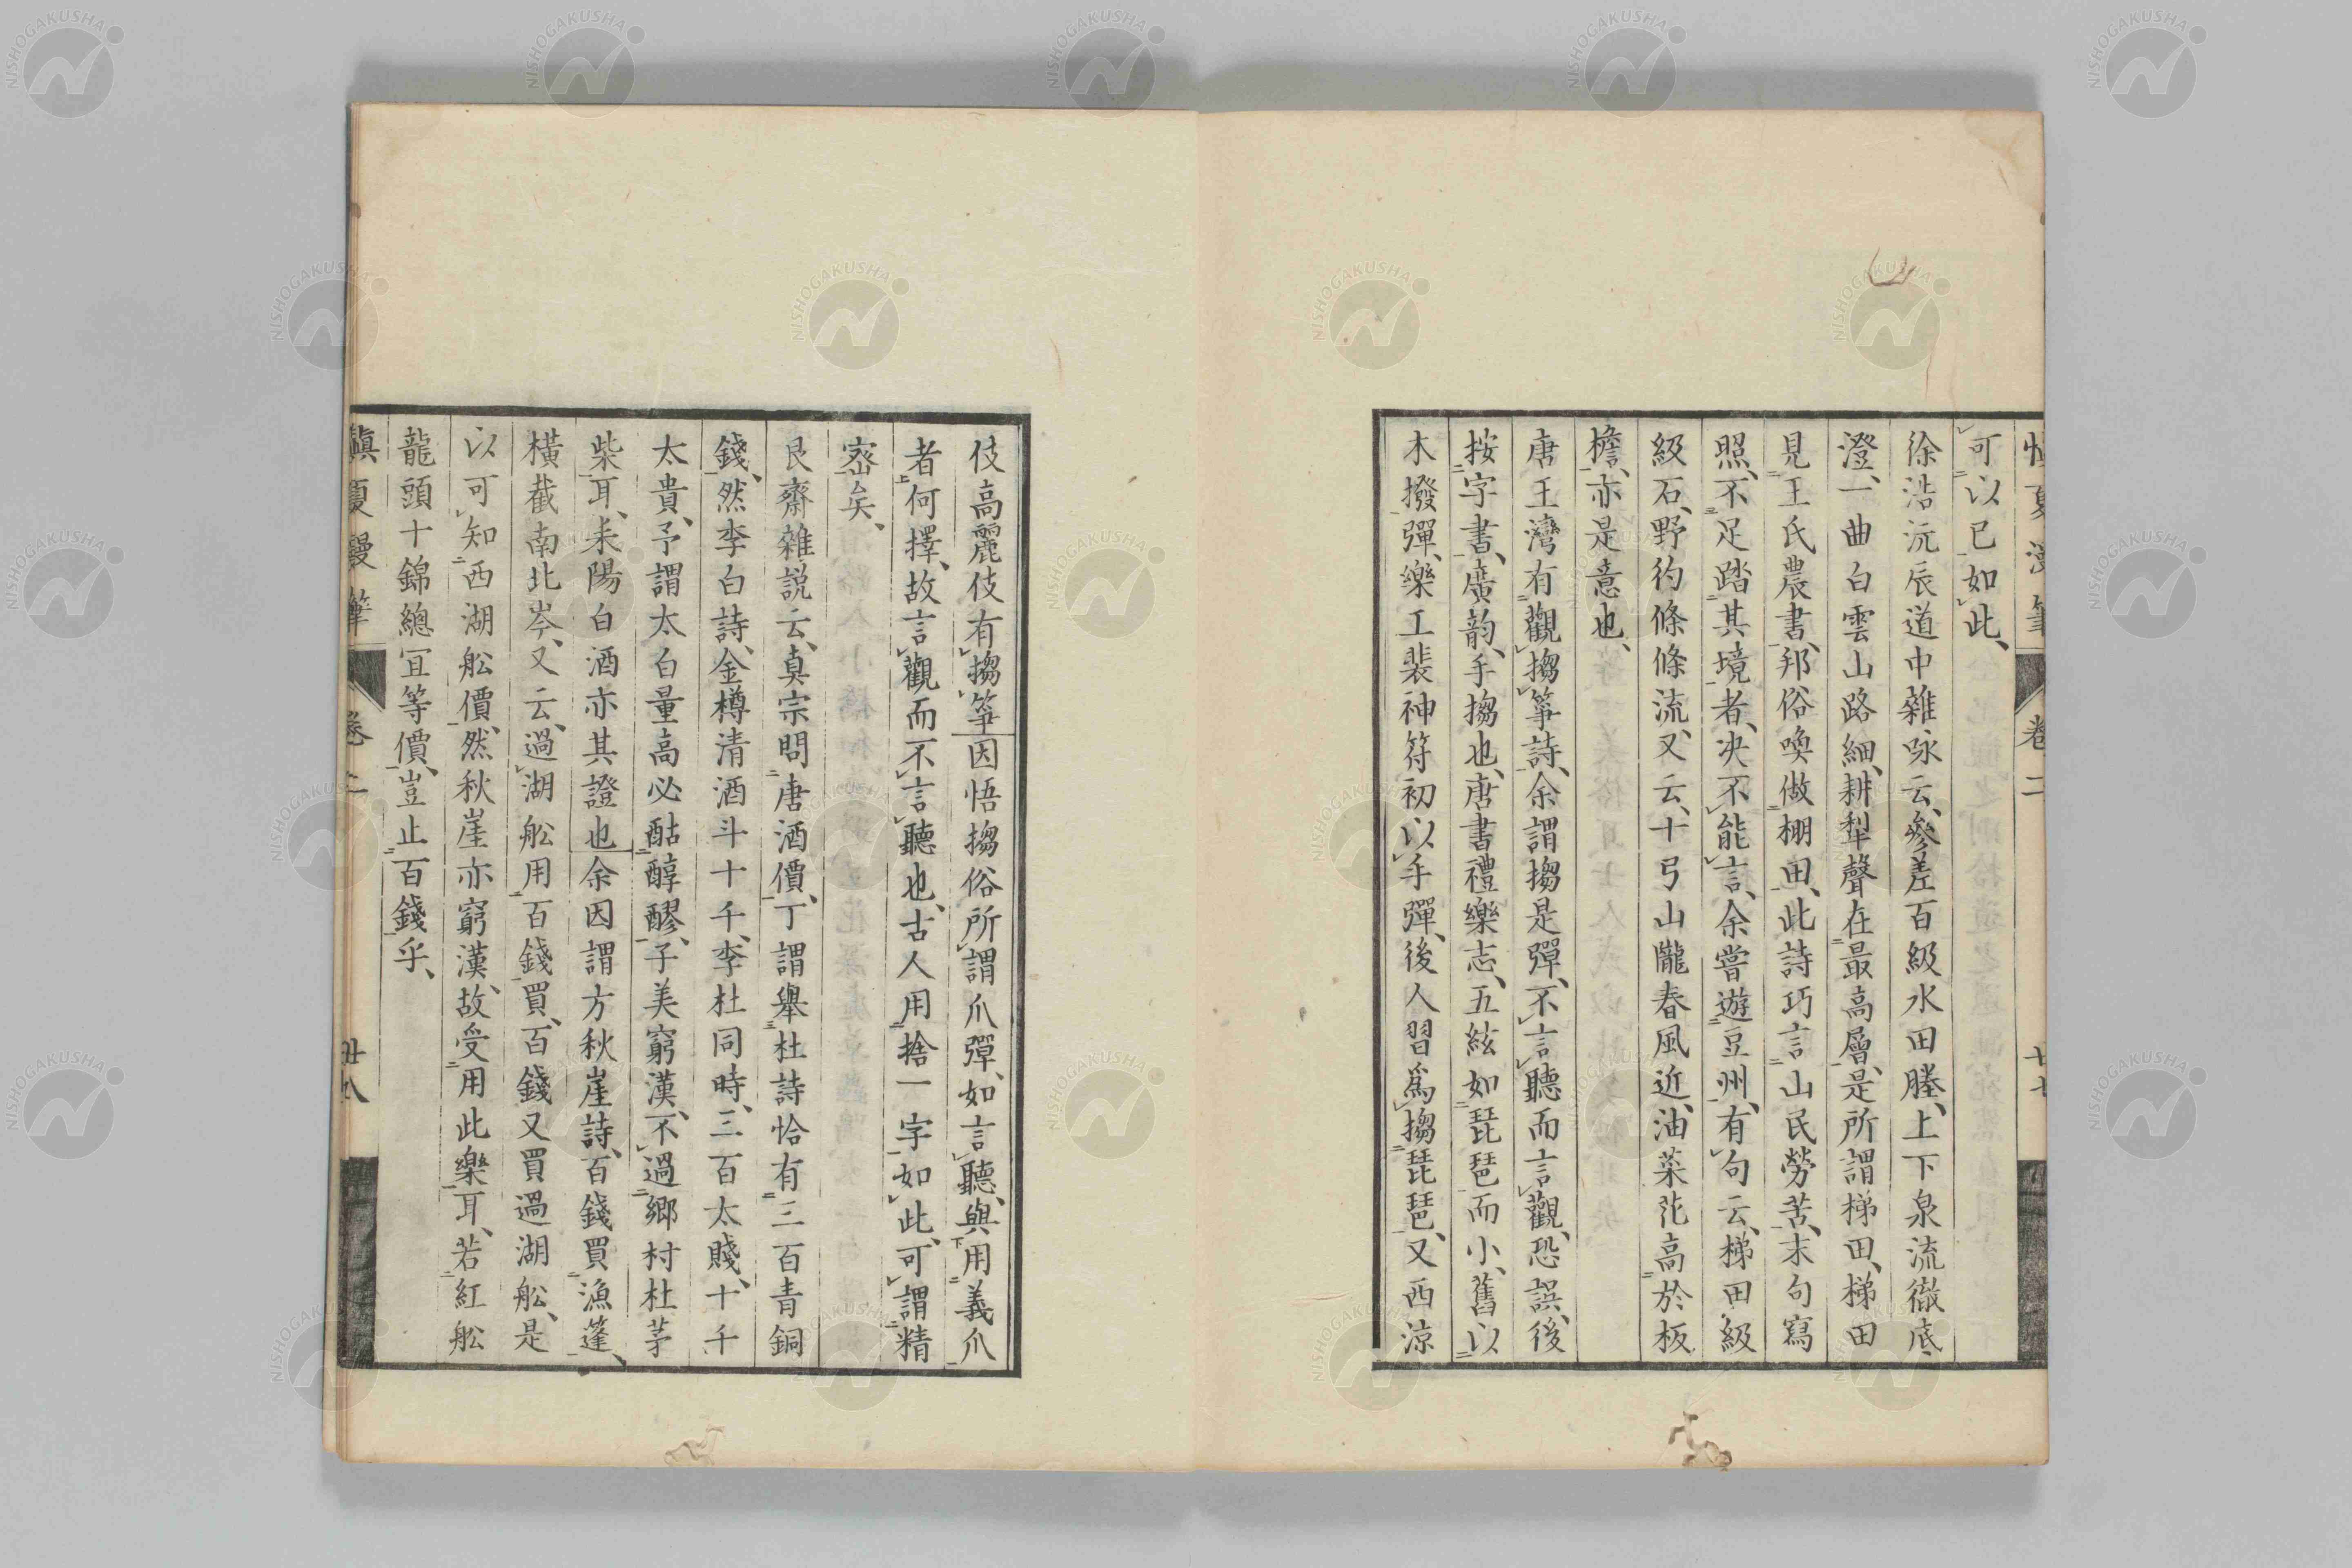 愼夏漫筆 卷二 廿七
可以已如此、
徐浩沅辰道中雜咏云、參差百級水田塍、上下泉流徹底
澄、一曲白雲山路細、耕犁聲在最高層、是所謂梯田、梯田
見王氏農書、邦俗喚做棚田、此詩巧言山民勞苦、末句寫
照、不足踏其境者、决不能言、余嘗遊豆州、有句云、梯田級
級石、野彴條條流、又云、十弓山隴春風近、油菜花高於板
檐、亦是意也、
唐王灣有觀搊箏詩、余謂搊是彈、不言聽而言觀、恐誤、後
按字書、廣韵、手搊也、唐書禮樂志、五絃如琵琶而小、舊以
木撥彈、樂工裴神符初以手彈、後人習爲搊琵琶、又西涼
伎高麗伎有搊箏因悟搊俗所謂爪彈、如言聽、與用義爪
者何擇、故言觀而不言聽也、古人用捨一字如此、可謂精
密矣、
艮齋雜説云、眞宗問唐酒價、丁謂舉杜詩恰有三百青銅
錢、然李白詩、金樽清酒斗十千、李杜同時、三百太賤、十千
太貴、予謂太白量高必酤醇醪、子美窮漢、不過鄉村杜茅
柴耳、耒陽白酒亦其證也余因謂方秋崖詩、百錢買漁蓬、
橫截南北岑、又云、過湖舩用百錢買、百錢又買過湖舩、是
以可知西湖舩價、然秋崖亦窮漢、故受用此樂耳、若紅舩
龍頭十錦總宜等價、豈止百錢乎、
愼夏漫筆 卷二 廿八
NISHOGAKUSHA